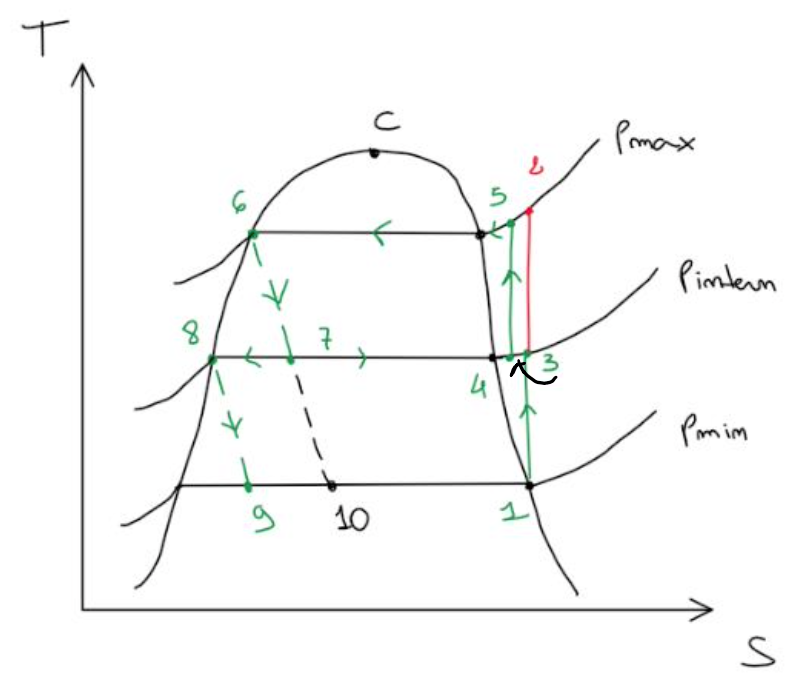 T
C
Pmax
2
5
6
Pinterm
8
7
3
4
Pmin
9
10
1
S